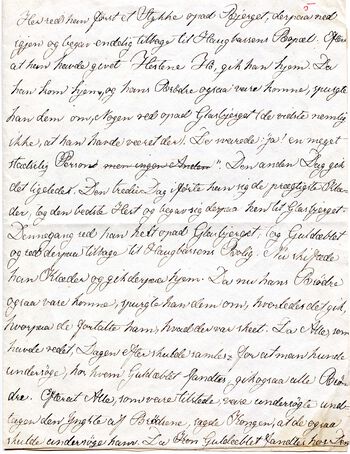 5
Her red han først et Stykke opad Bjerget, derpaa ned
igjen og begav endelig tilbage til Haugbassens Bopæl. Efter
at han havde givet Hestene Hø, gik han hjem. Da
han kom hjem, og hans Brödre ogsaa vare komne, spurgte
han dem om, Nogen red opad Glasbjerget (de vidste nemlig
ikke, at han havde været der). De svarede "ja! en meget
statselig Person men ingen Anden". Den anden Dag gik
det ligeledes. Den tredie Dag førte han sig de prægtigste Klæ-
der, tog den bedste Hest og begav sig derpaa hen til Glasbjerget.
Dennegang red han helt opad Glasbjerget, tog Guldæblet
og red derpaa tilbage til Haugbassens Bolig. Nu
han Klæder og gik derpaa hjem. Da nu hans Brödre
ogsaa vare komne, spurgte han dem om, hvorledes det gik,
hvorpaa de fortalte ham, hvad der var skeet. Da Alle, som
havde redet, Dagen efter skulde samles for at man kunde
undersöge, hos hvem Guldæblet fandtes, gik ogsaa alle Brö-
dre. Efterat Alle, som vare tilstede, vare undersøgte und-
tagen den Yngste af Brödrene, sagde Kongen, at de ogsaa
skulde undersöge ham. Da Kon Guldæblet fandtes hos